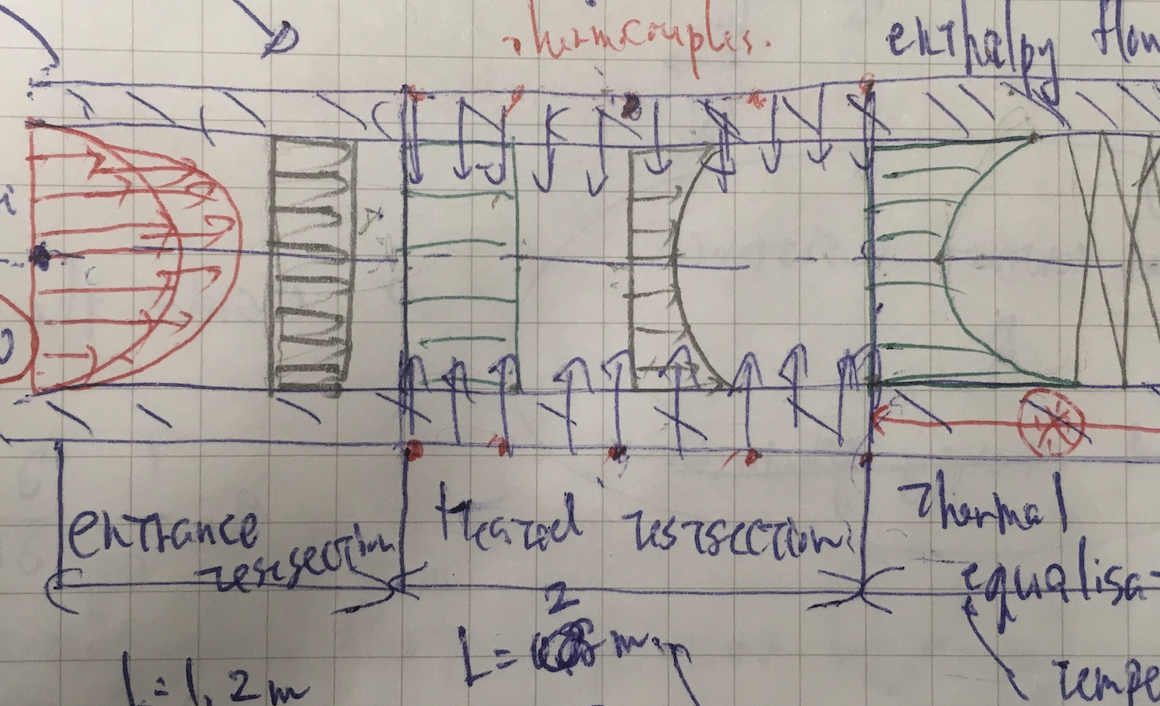 Thermcouples.
enthalpy flow
entrance
testsection
Heated testsection
Thermal
equalisa-
L = 1,2 m
2
L = m
tempe